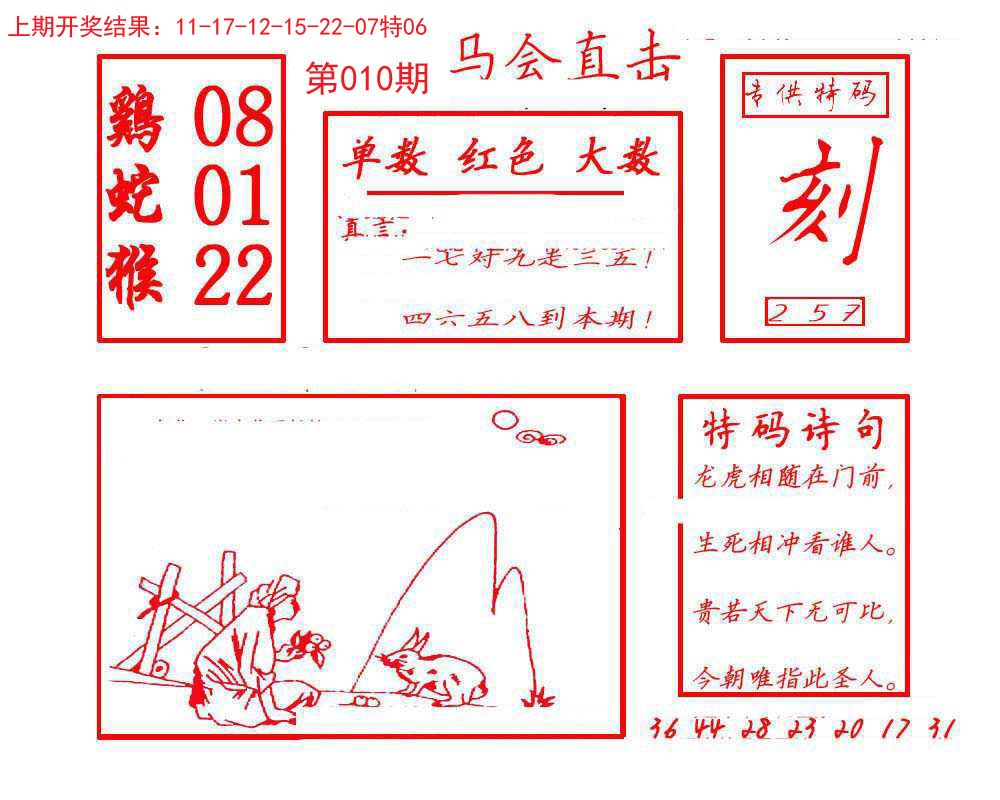 上期开奖结果：11-17-12-15-22-07特06
第010期
马会直击
鷄 08
蛇 01
猴 22
单数 红色 大数
真言：
一七对九是三五！
四六五八到本期！
专供特码
刻
2 5 7
特码诗句
龙虎相随在门前，
生死相冲看谁人。
贵若天下无可比，
今朝唯指此圣人。
36 44 28 23 20 17 31